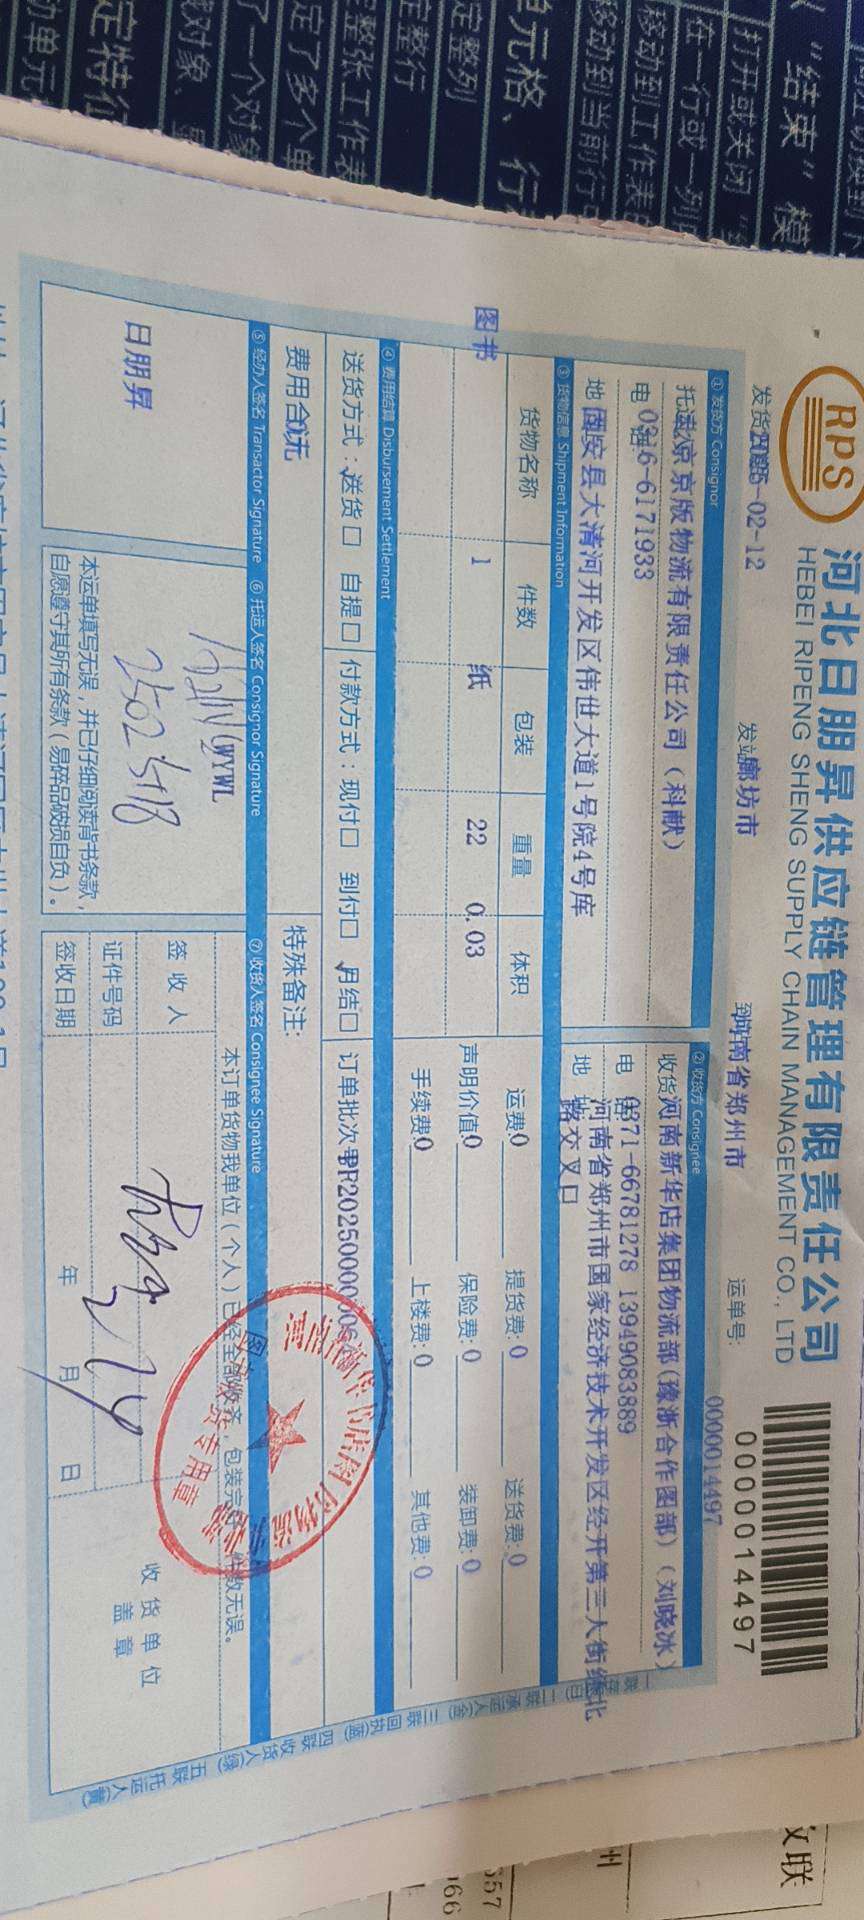 RPS
河北日朋昇供应链管理有限责任公司
HEBEI RIPENG SHENG SUPPLY CHAIN MANAGEMENT CO., LTD
0000014497
发货 2025-02-12
发站 廊坊市
到 河南省郑州市
运单号:
0000014497
① 发货方 Consignor
托运 北京京版物流有限责任公司（科献）
电 0316-6171933
地 固安县大清河开发区伟世大道1号院4号库
② 收货方 Consignee
收货 河南新华店集团物流部(豫浙合作图部)(刘晓冰)
电 0371-66781278 13949083889
地 河南省郑州市国家经济技术开发区经开第三大街 北
路交叉口
③ 货物信息 Shipment Information
货物名称 件数 包装 重量 体积
图书 1 纸 22 0.03
运费:0 提货费:0 送货费:0
声明价值:0 保险费:0 装卸费:0
手续费:0 上楼费:0 其他费:0
④ 费用结算 Disbursement Settlement
送货方式：送货□ 自提□ 付款方式：现付□ 到付□ 月结□ 订单批次号
费用合 0元
特殊备注:
⑤ 经办人签名 Transactor Signature
日朋昇
⑥ 托运人签名 Consignor Signature
WYWL
本运单填写无误，并已仔细阅读背书条款，
自愿遵守其所有条款（易碎品破损自负）。
⑦ 收货人签名 Consignee Signature
本订单货物我单位（个人）已经全部收齐，包装完 件数无误。
签收人
证件号码
签收日期 年 月 日
收货单位
盖章
专用章
二联承运人(金) 三联回执(蓝) 四联收货人(绿) 五联托运人(黄)
“结束”模
打开或关闭
在一行或一列
移动到工作表
移动到当前行
单元格、行
定整列
定整行
定整张工作表
定了多个单
了一个对象
定特征